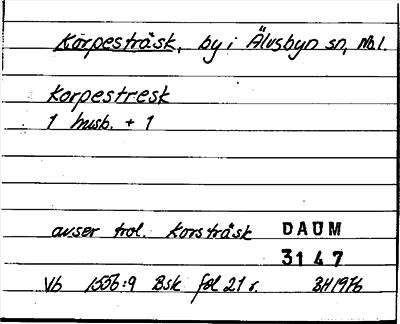 Korpesträsk, by i Älvsbyn sn, Nbl.
Korpestresk
1 husb. + 1
avser trol. Korsträsk DAUM
3147
Vb 1556:9 Bsk fol 21 r. BH1976